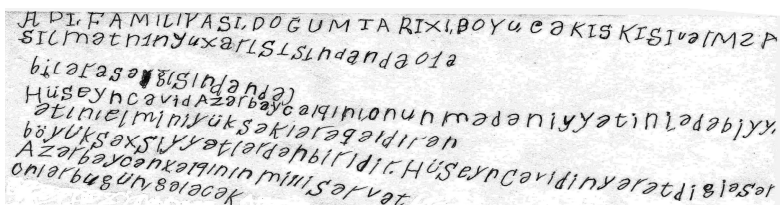 ADI, FAMILIYASI, DOGUM TARIXI, BOYU ÇƏKIS KISI və IMZA
SILmətnin yuxarı sısındanda ola
bilər aşağısındandə)
Hüseyn Cavid Azərbaycalqınıonun mədəniyyətin ədəbiyy,
ətini elmini yüksəklərə qaldıran
böyük şəxsiyyətlərdən biridir. Hüseyn Cavidin yaratdigiəsər
Azərbaycan xalqının milli sərvət
onlar bu gün, gələcək